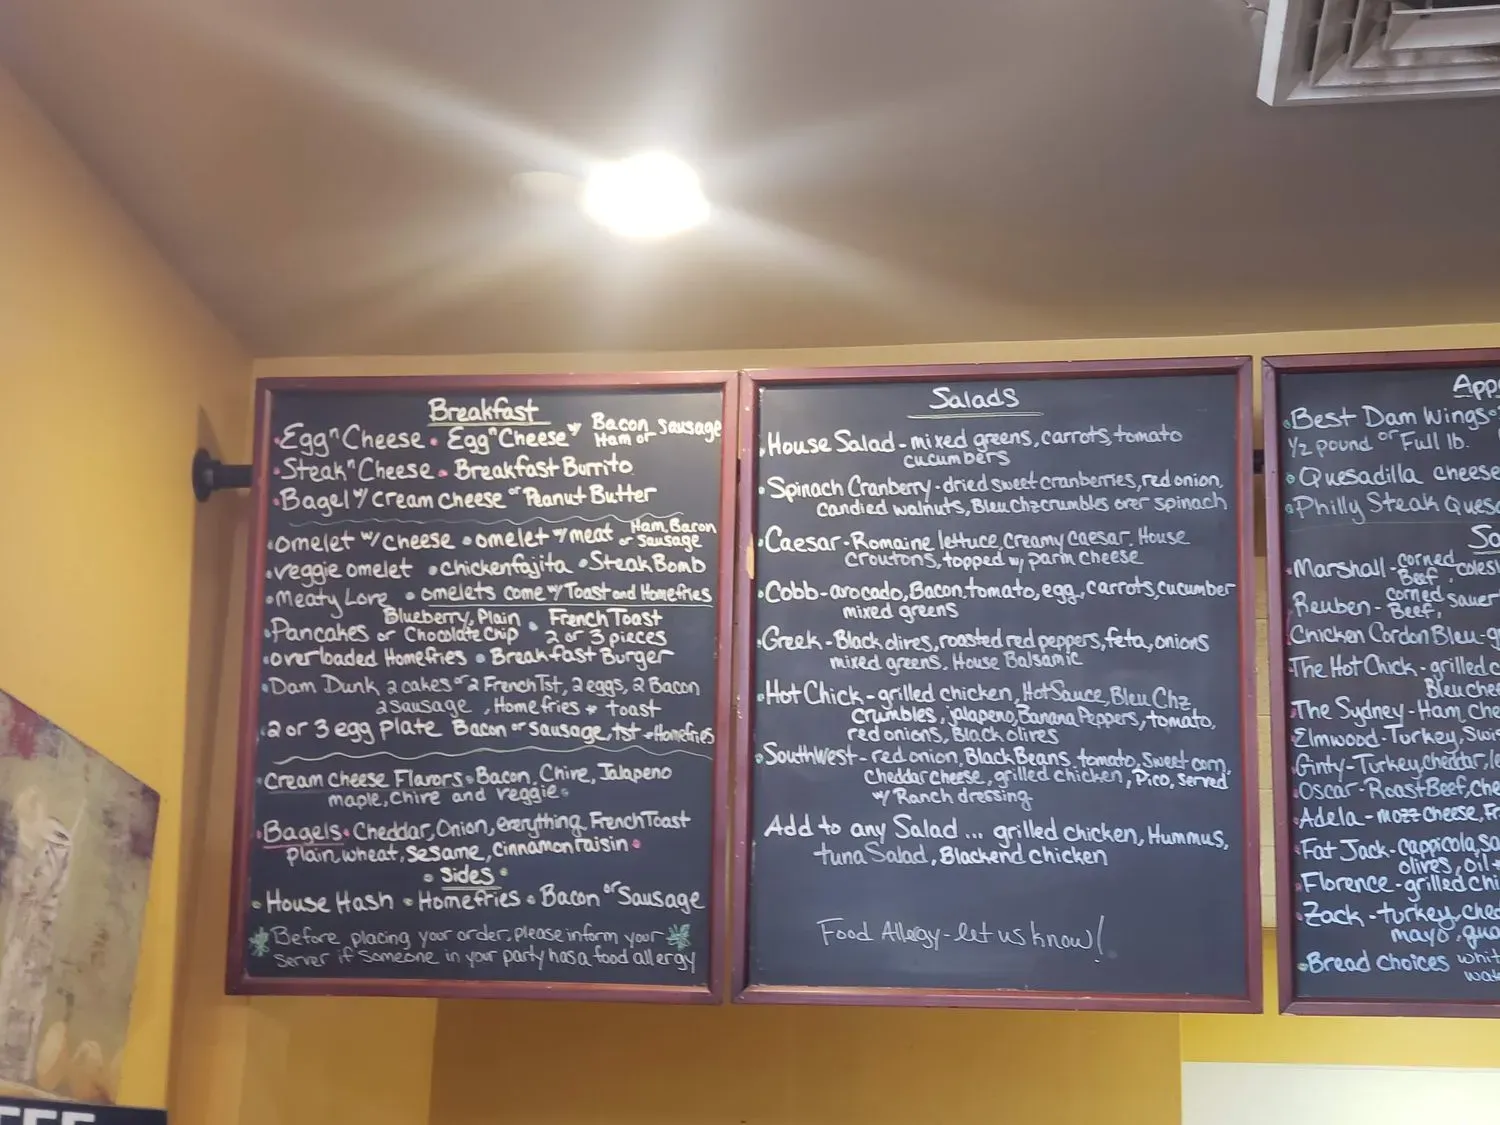 Breakfast
Egg "n" Cheese • Egg "n" Cheese w/ Bacon Sausage Ham or
Steak "n" Cheese • Breakfast Burrito
Bagel w/ Cream Cheese or Peanut Butter
Omelet w/ Cheese • Omelet w/ meat Ham, Bacon or Sausage
Veggie omelet • Chicken fajita • Steak Bomb
Meaty Lore • omelets come w/ Toast and Homefries
Pancakes Blueberry, Plain or Chocolate Chip • French Toast 2 or 3 pieces
overloaded Homefries • Breakfast Burger
Dam Dunk 2 cakes or 2 French Tst, 2 eggs, 2 Bacon
2 sausage, Homefries + toast
2 or 3 egg Plate Bacon or Sausage, tst + Homefries
Cream Cheese Flavors • Bacon, Chive, Jalapeno
maple, Chive and veggie
Bagels • Cheddar, Onion, everything, French Toast
plain, wheat, sesame, cinnamon raisin
• Sides •
House Hash • Homefries • Bacon or Sausage
Before placing your order, please inform your
server if someone in your party has a food allergy
Salads
House Salad - mixed greens, carrots, tomato
cucumbers
Spinach Cranberry - dried sweet cranberries, red onion,
candied walnuts, Bleu chz crumbles over spinach
Caesar - Romaine lettuce, creamy caesar. House
Croutons, topped w/ parm cheese
Cobb - avocado, Bacon, tomato, egg, carrots, cucumber
mixed greens
Greek - Black olives, roasted red peppers, feta, onions
mixed greens, House Balsamic
Hot Chick - grilled chicken, Hot Sauce, Bleu Chz
Crumbles, jalapeno, Banana Peppers, tomato,
red onions, Black olives
Southwest - red onion, Black Beans, tomato, sweet corn,
cheddar cheese, grilled chicken, Pico, served
w/ Ranch dressing
Add to any Salad ... grilled chicken, Hummus,
tuna Salad, Blackend chicken
Food Allergy - let us know!
App
Best Dam Wings
1/2 pound or Full lb.
Quesadilla cheese
Philly Steak Ques
Marshall - corned Beef, coles
Reuben - corned Beef, sauer
Chicken Cordon Bleu - g
The Hot Chick - grilled c
Bleu che
The Sydney - Ham, che
Elmwood - Turkey, Swis
Ginty - Turkey, cheddar, le
Oscar - Roast Beef, Che
Adela - mozz cheese, Fr
Fat Jack - cappicola, sa
olives, oil +
Florence - grilled chi
Zack - turkey, ched
mayo, gua
Bread choices whit